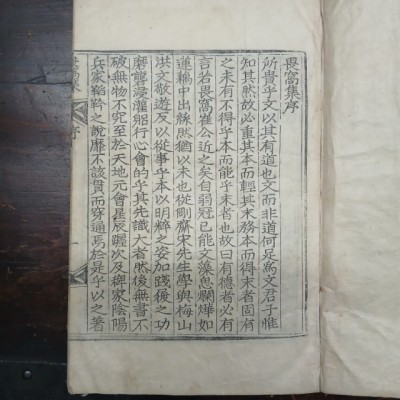 畏窩集序
所貴乎文以其有道也文而非道何足爲文君子惟
知其然故必重其本而輕其末務本而得末者固有
之未有不得乎本而能乎末者也故曰有德者必有
言若畏窩崔公近之矣自弱冠已能文藻思爛燁如
蓮輤中出綵然猶以未也從剛齋宋先生學與梅山
洪文敬遊反以從事乎本以明粹之姿加踐履之功
磨礱浸灌船行心會的乎其先識大者然後無書不
破無物不究至於天地元會星辰躔次及稗家陰陽
兵家韜鈐之說靡不該貫而穿通焉於是乎以之著
畏窩集
序
一